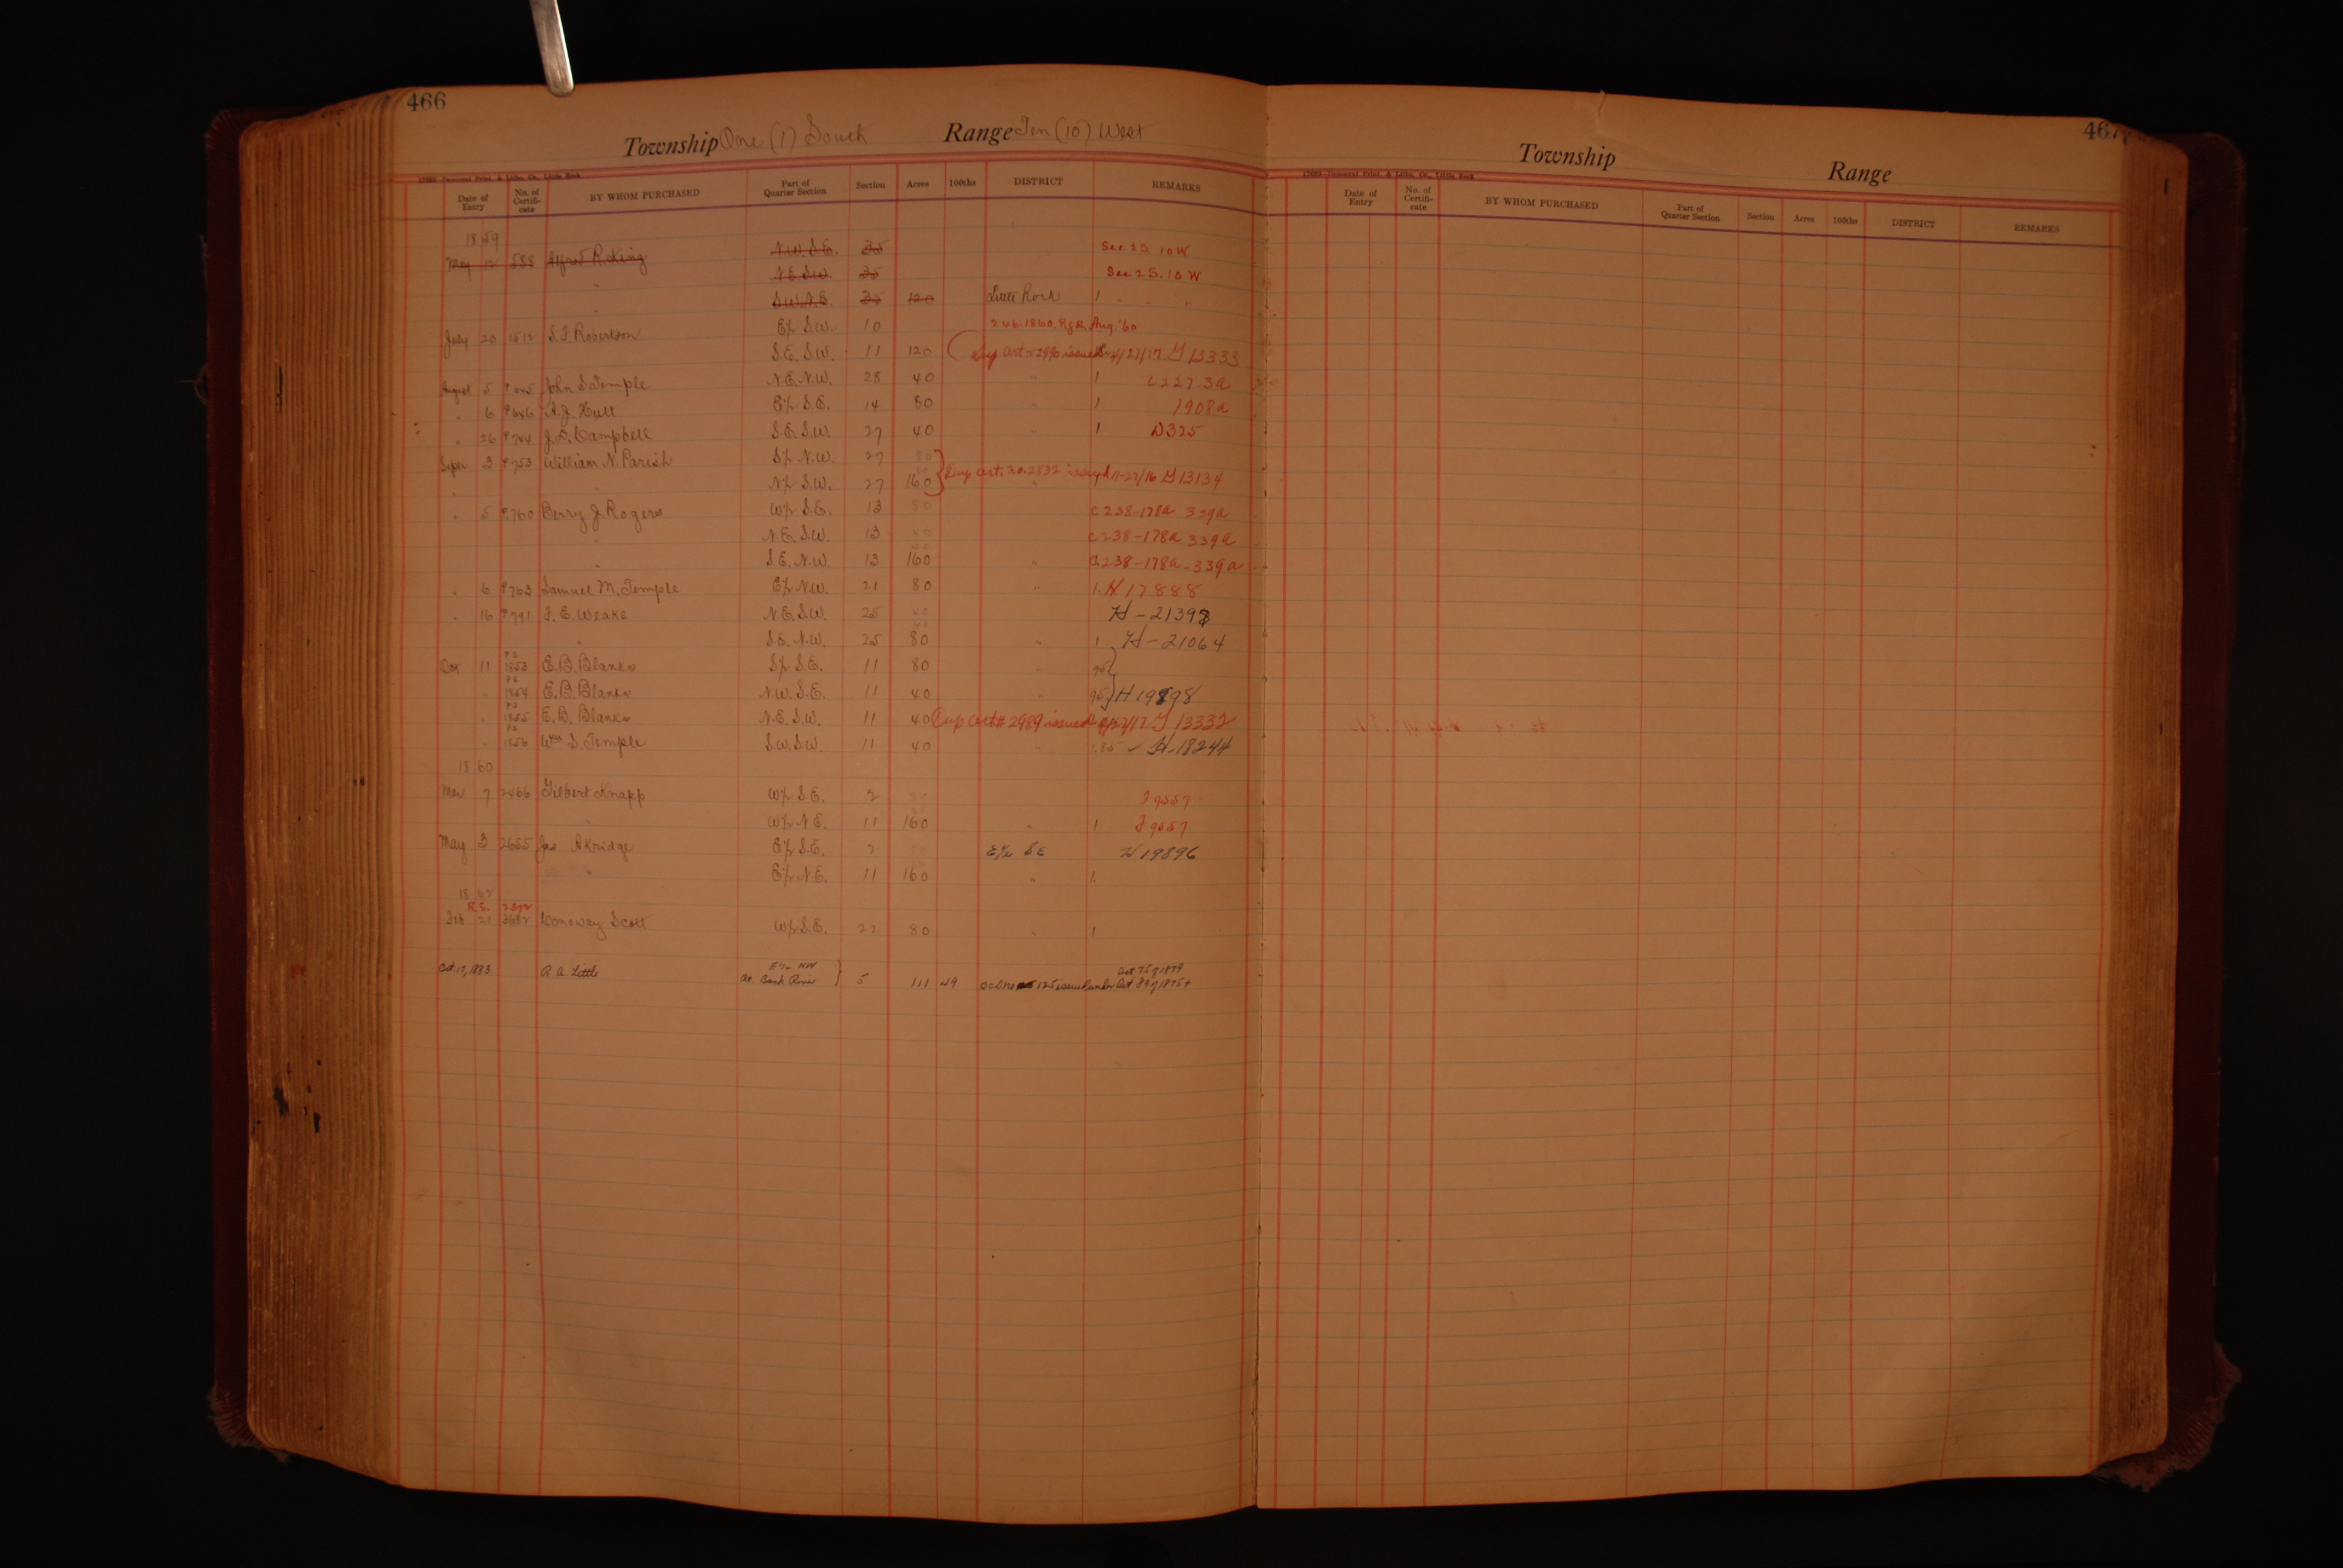 466
Township One (1) South Range Ten (10) West
Date of Entry No. of Certifi-cate BY WHOM PURCHASED Part of Quarter Section Section Acres 100ths DISTRICT REMARKS
1859
May 12 588 Alfred R. King N.W. S.E. 35 See 2 S. 10 W
" N.E. S.W. 35 See 2 S. 10 W
S.W. N.E. 35 120 Little Rock 1 " " "
July 20 1512 S.F. Robertson E½ S.W. 10 246.1860. Aug. '60
S.E. S.W. 11 120 Dup Cert 2990 issued 4/27/17 G 13333
August 5 P645 John S. Temple N.E. N.W. 28 40 " 1 C 227.3a
" 6 P646 A.J. Hutt E½ S.E. 14 80 " 1 7908a
" 26 P744 J.D. Campbell S.E. S.W. 27 40 " 1 D325
Septr 3 P753 William N. Parish S½ N.W. 27 80
" " N½ S.W. 27 160 Dup Cert. No. 2832 issued 11-27/16 G 13134
" 5 P.760 Berry J. Rogers W½ S.E. 13 80 C 238-178a 339a
" N.E. S.W. 13 40 C 238-178a 339a
" S.E. N.W. 13 160 " C.238-178a-339a
" 6 P763 Samuel M. Temple E½ N.W. 21 80 " 1. H 17888
" 16 P791 F.E. Weaks N.E. S.W. 25 40 H-21398
" S.E. N.W. 25 80 " 1 H-21064
Oct 11 PS 1853 E.B. Blanks S½ S.E. 11 80 " 95
" PS 1854 E.B. Blanks N.W. S.E. 11 40 " 95 H 19898
" PS 1855 E.B. Blanks N.E. S.W. 11 40 Dup Cert # 2989 issued 4/27/17 G 13332
" PS 1856 Wm S. Temple S.W. S.W. 11 40 " 1.85 - H.18244
1860
Mar 7 2466 Gilbert Knapp W½ S.E. 2 80 I 9557
" W½ N.E. 11 160 " 1 I 9557
May 3 2655 Jas Akridge E½ S.E. 2 80 E½ SE H 19896
" E½ N.E. 11 160 " 1.
1862
R.E. 2392
Feb 21 3682 Conoway Scott W½ S.E. 22 80 " 1
Oct. 17, 1883 R A Little E½ NW
At Bank River 5 111 49 125 issued under Act 89 of 1875 + Act 75 of 1879
467
Township Range
17685 Democrat Print. & Litho. Co., Little Rock
Date of Entry No. of Certifi-cate BY WHOM PURCHASED Part of Quarter Section Section Acres 100ths DISTRICT REMARKS